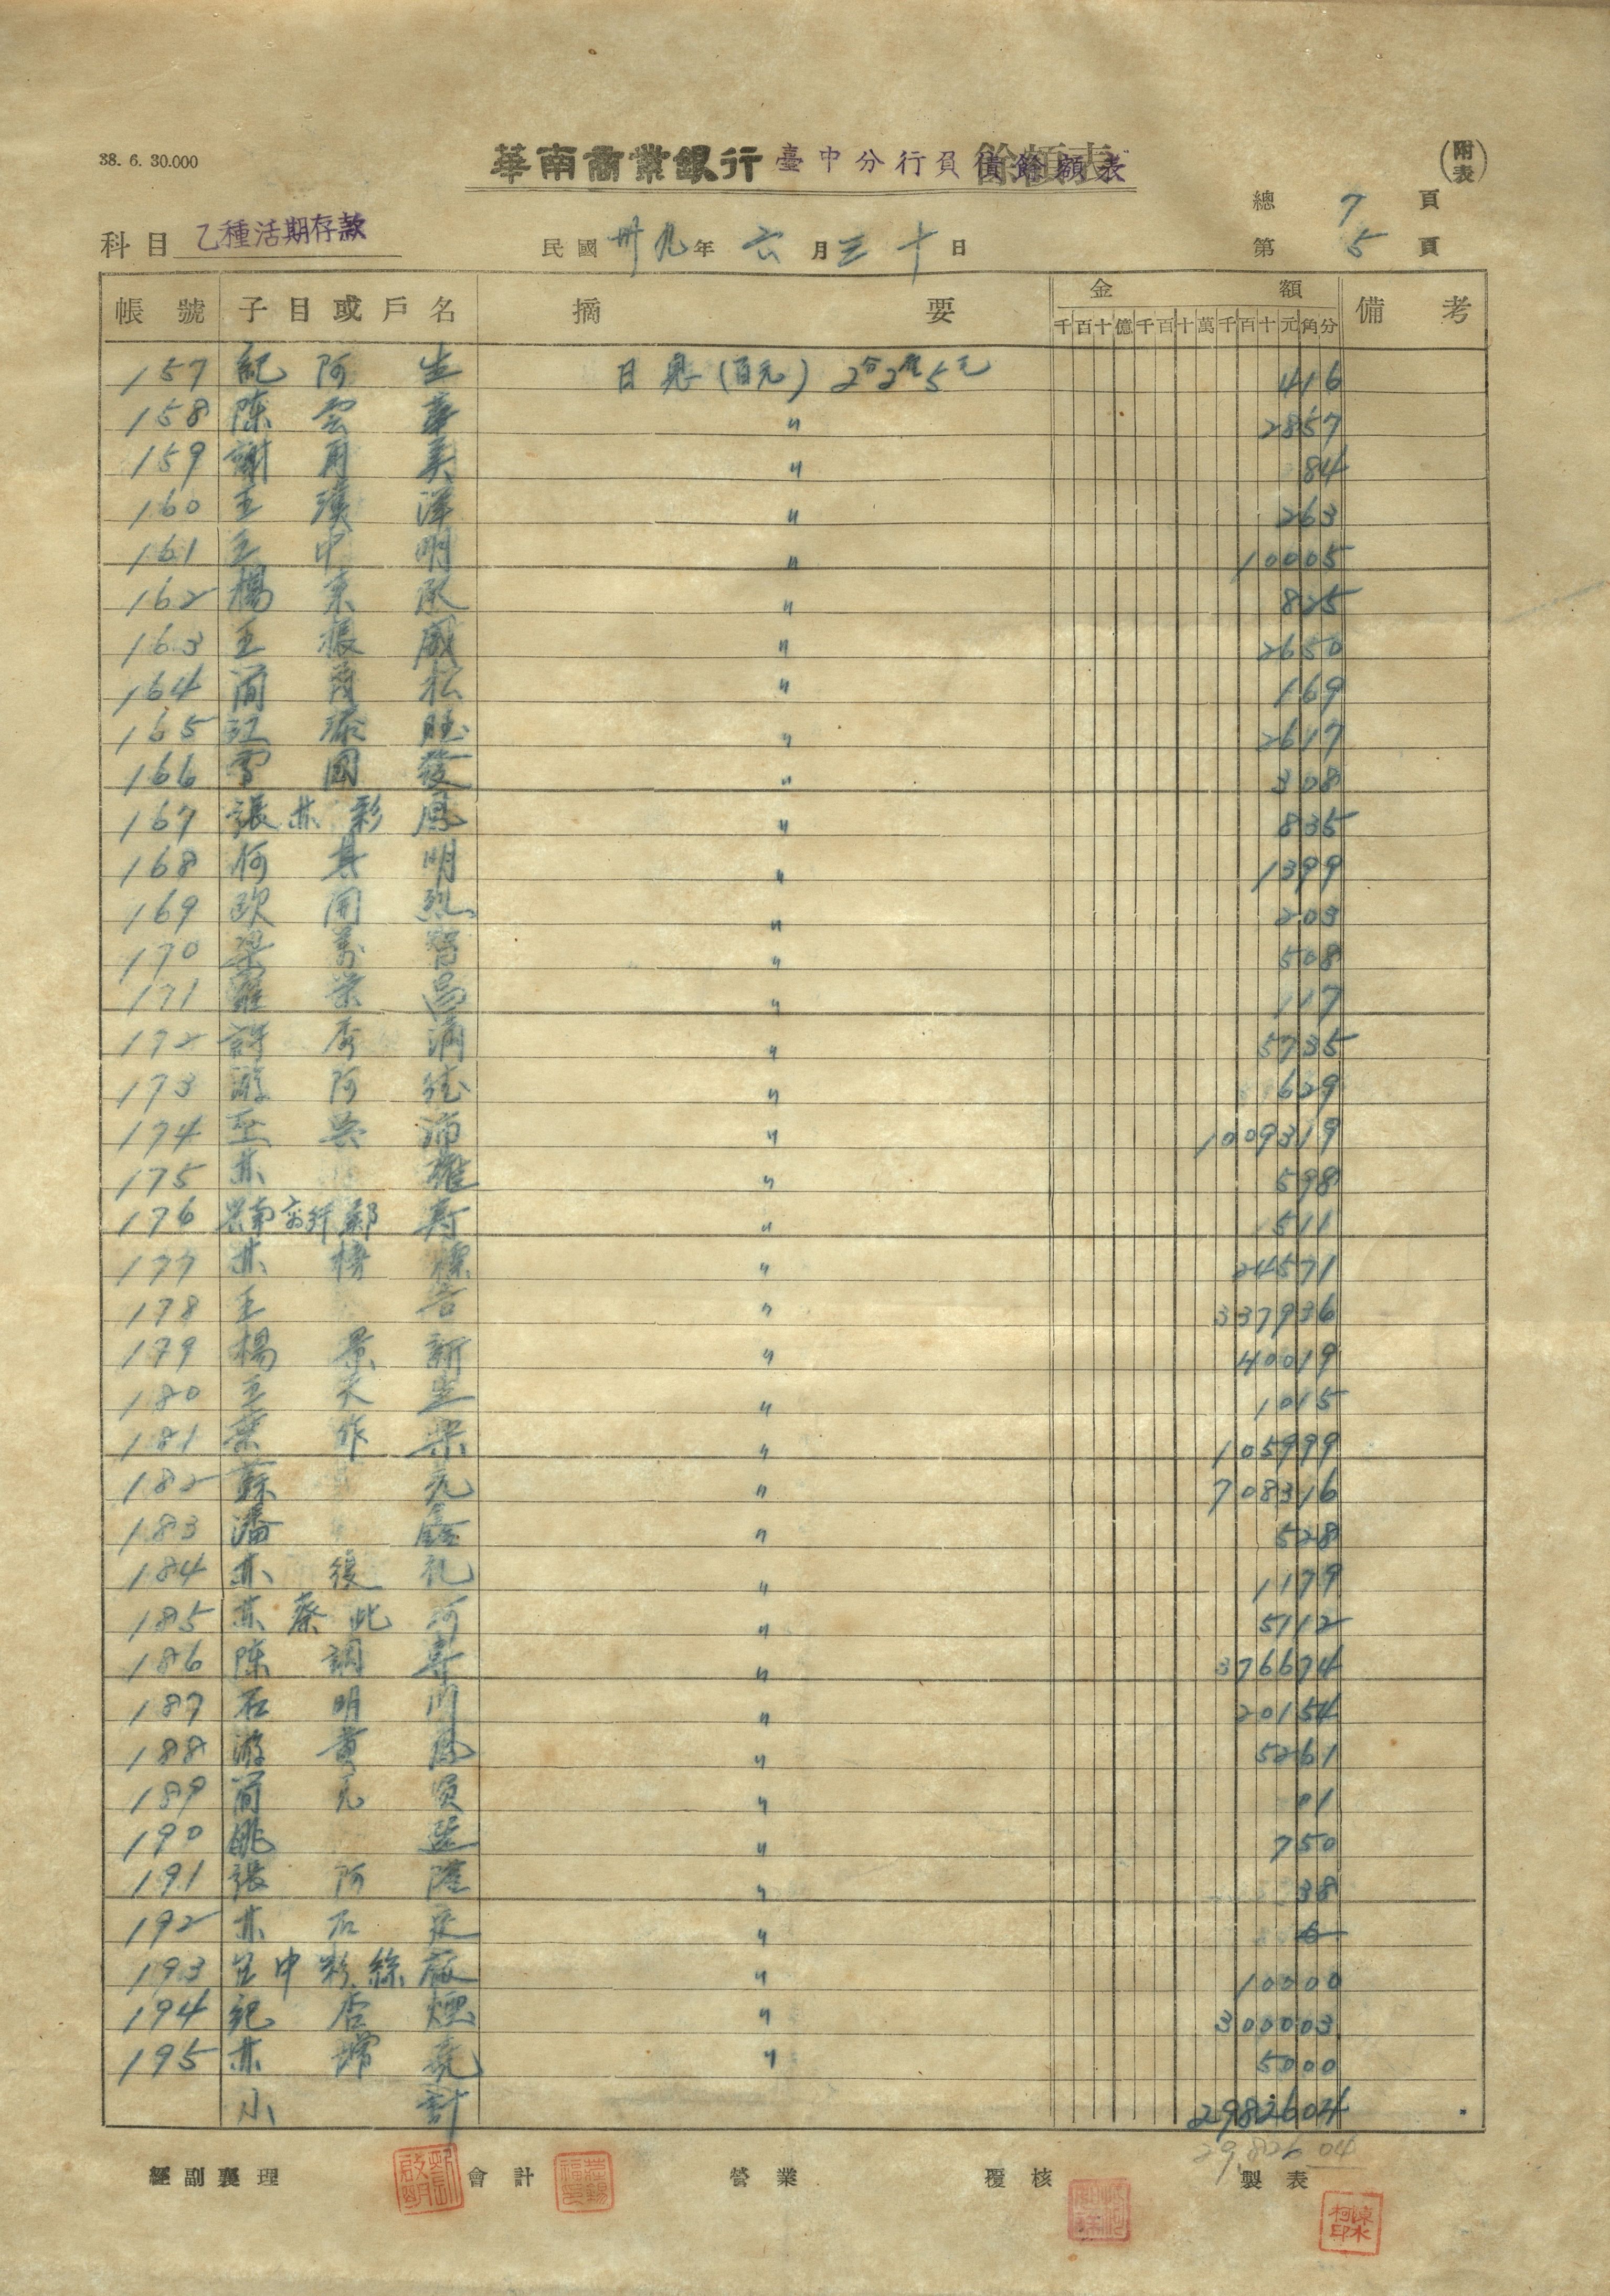 38. 6. 30.000
華南商業銀行臺中分行負債餘額表
(附表)
總 7 頁
科目 乙種活期存款
民國 卅九 年 六 月 三十 日
第 5 頁
帳號 子目或戶名 摘要 金額 備考
千百十億千百十萬千百十元角分
157 紀阿生 日息(百元) 2分2厘5毛 416
158 陈雲華 〃 2857
159 謝月美 〃 84
160 王漢澤 〃 263
161 王中明 〃 10005
162 楊 〃 825
163 王振國 〃 2650
164 簡 松 〃 169
165 江添旺 〃 2617
166 雷國發 〃 308
167 張林彩鳳 〃 835
168 何其明 〃 1399
169 欧開烈 〃 203
170 梁 智 〃 508
171 羅榮昌 〃 117
172 許 滿 〃 5735
173 游阿德 〃 629
174 沛 〃 1009319
175 林 雄 〃 598
176 鄭寿 〃 511
177 林榜標 〃 24571
178 王 〃 337936
179 楊景新 〃 40019
180 王天生 〃 1015
181 葉作樂 〃 105999
182 蘇元 〃 708316
183 潘鑫 〃 528
184 林後礼 〃 1179
185 林蔡 〃 5112
186 陈調寿 〃 376674
187 石明川 〃 20154
188 游黄鳳 〃 5261
189 簡元貿 〃 01
190 姚 〃 750
191 張阿隆 〃 38
192 林石 〃 6
193 中 絲廠 〃 10000
194 紀 煙 〃 300003
195 林 〃 5000
小計 2982604
29,826 04
經副襄理 會計 營業 覆核 製表